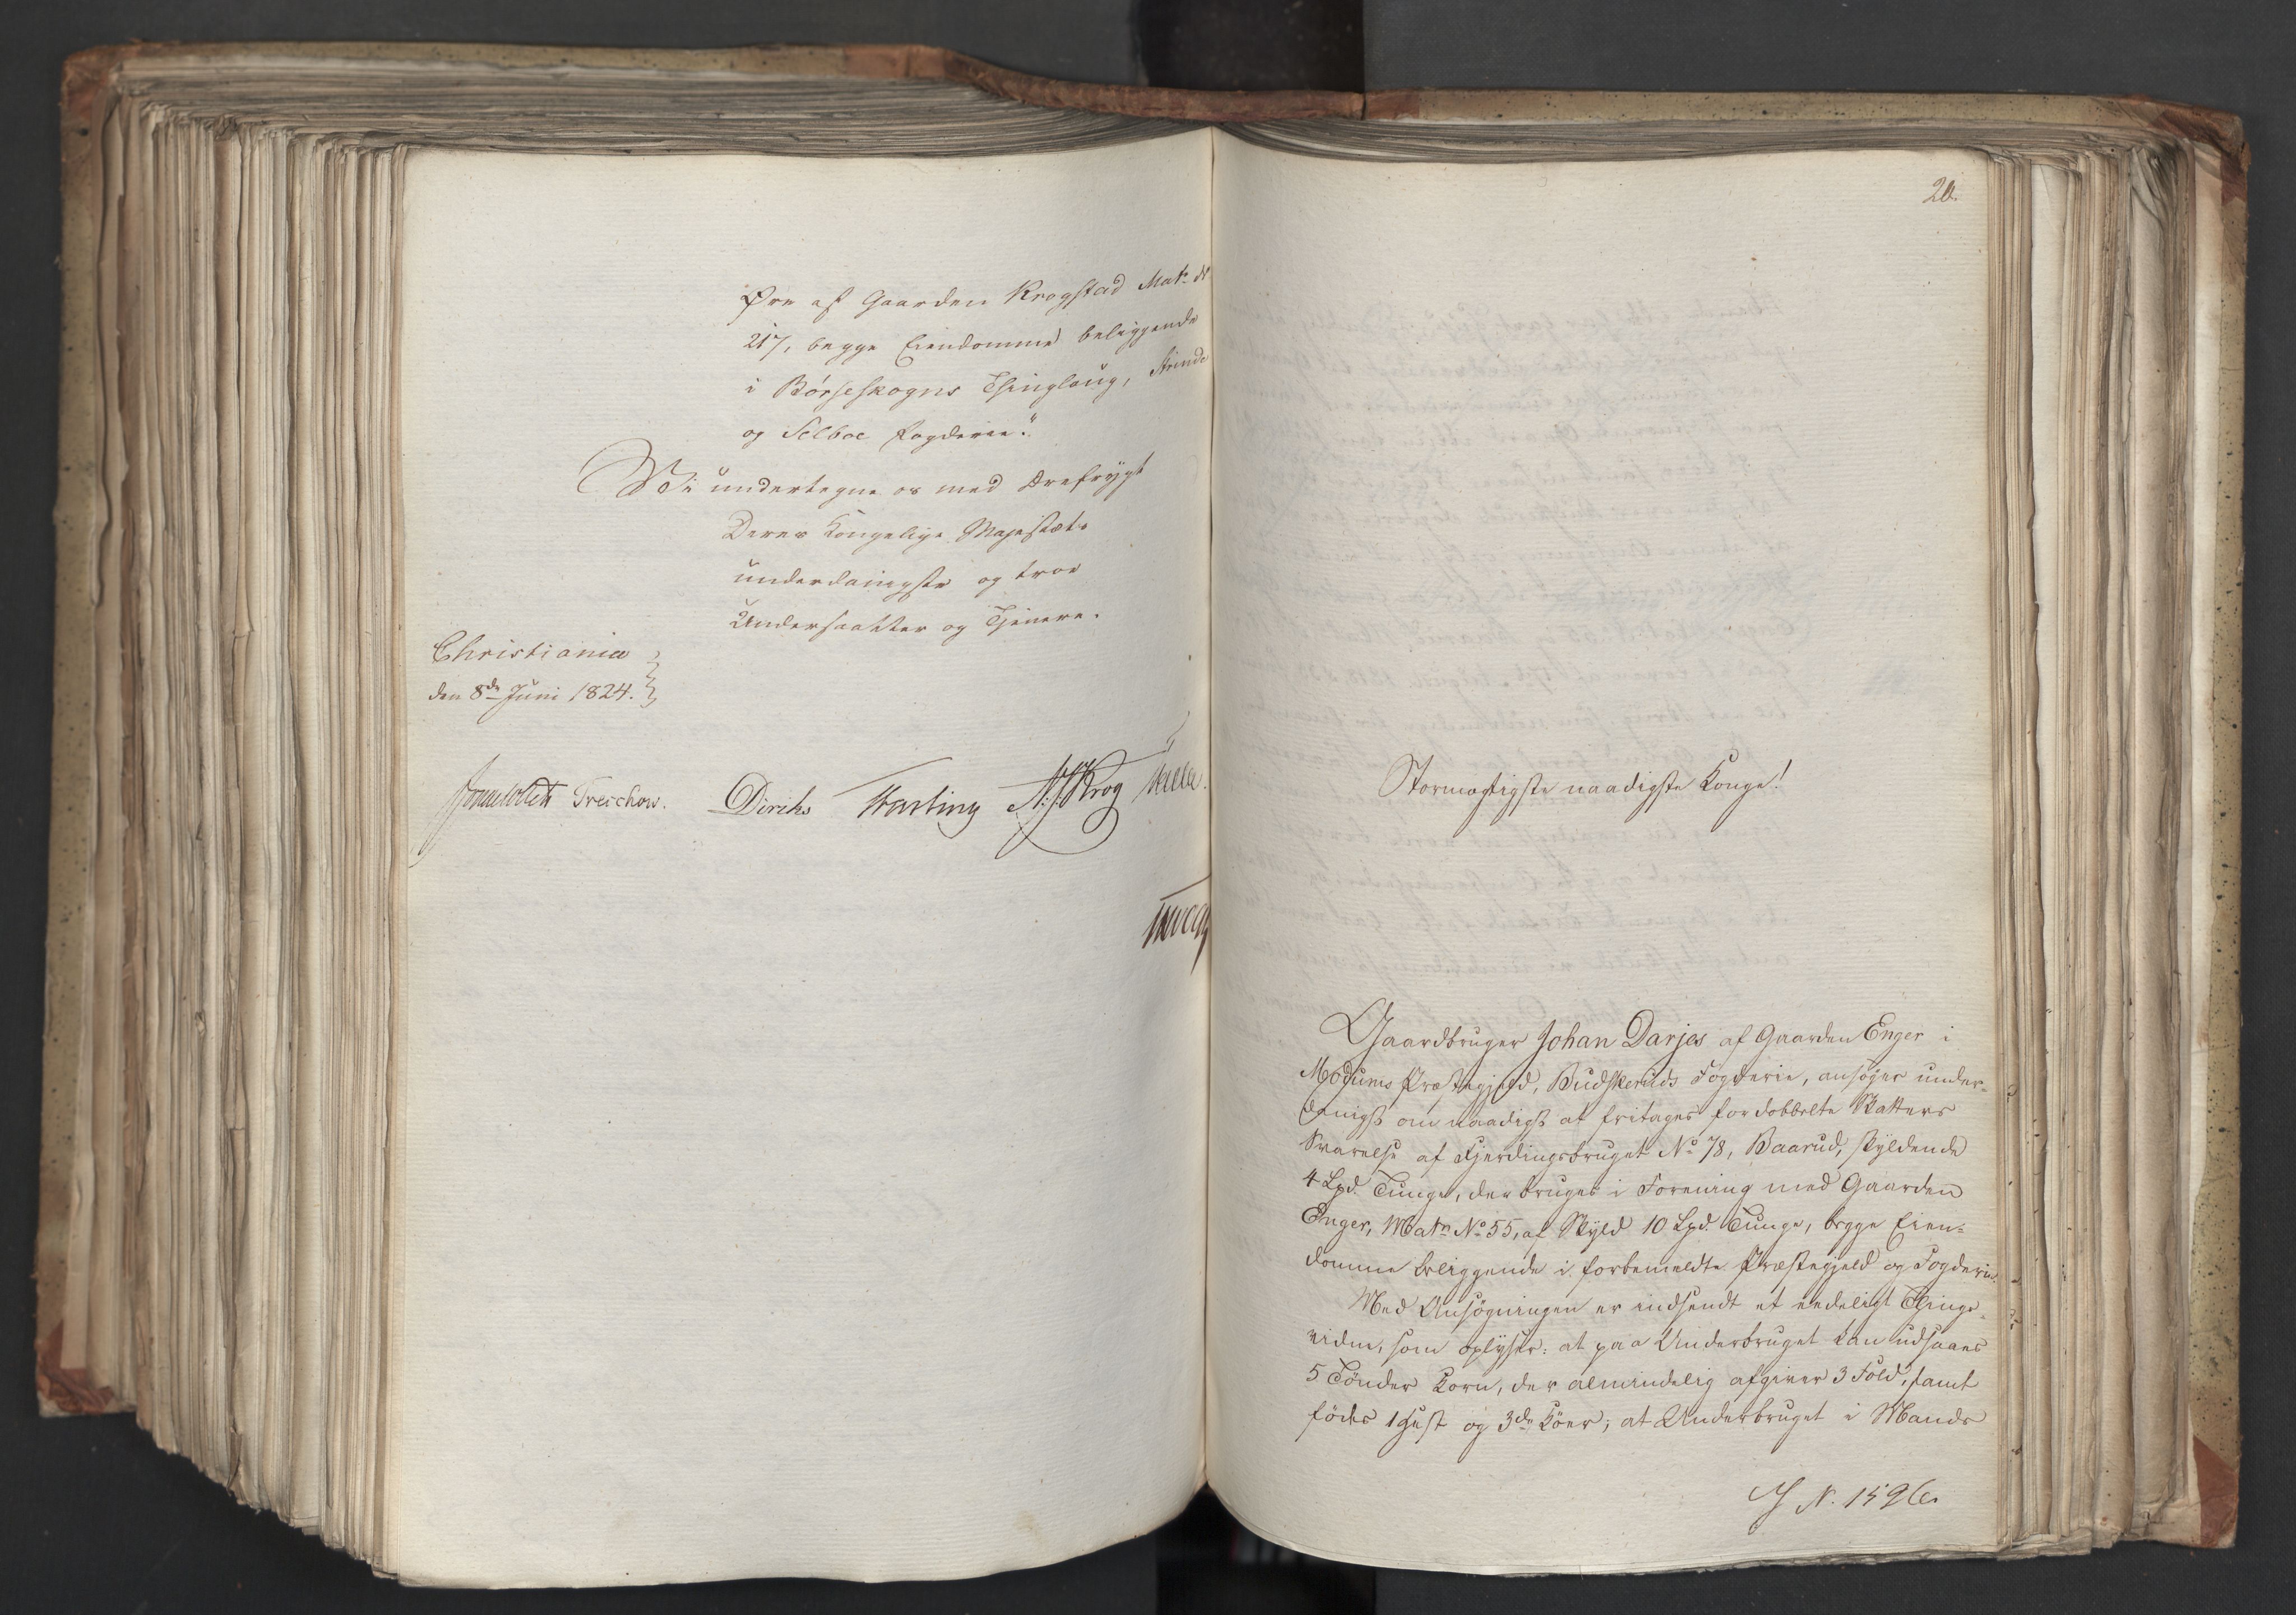 Øre af Gaarden Krogstad Mat: №
217, begge Eiendomme beliggende
i Børseskogns Thinglaug, Strinde
og Selboe Fogderie."
Vi undertegne os med Ærefrygt
Deres Kongelige Majestæts
underdanigste og troe
Undersaatter og Tjenere.
Christiania
den 8de Juni 1824.
Sommerhielm Treschow. Diriks Fasting N: J: Krog
20.
Stormægtigste naadigste Konge!
Gaardbruger Johan Darjes af Gaarden Enger i
Modums Præstegjeld, Budskeruds Fogderie, ansøger under-
danigst om naadigst at fritages for dobbelte Skatters
Svarelse af Fjerdingsbruget No 78, Baarud, skyldende
4 Lpd. Tunge, der bruges i Forening med Gaarden
Enger, Matr No 55, af Skyld 10 Lpd. Tunge, begge Eien-
domme beliggende i forbemeldte Præstegjeld og Fogderie.
Med Ansøgningen er indsendt et eedeligt Things-
vidne, som oplyser: at paa Underbruget kan udsaaes
5 Tønder Korn, der almindelig afgiver 3 Fold, samt
fødes 1 Hest og 3de Køer; at Underbruget i Mands
J N. 1596.